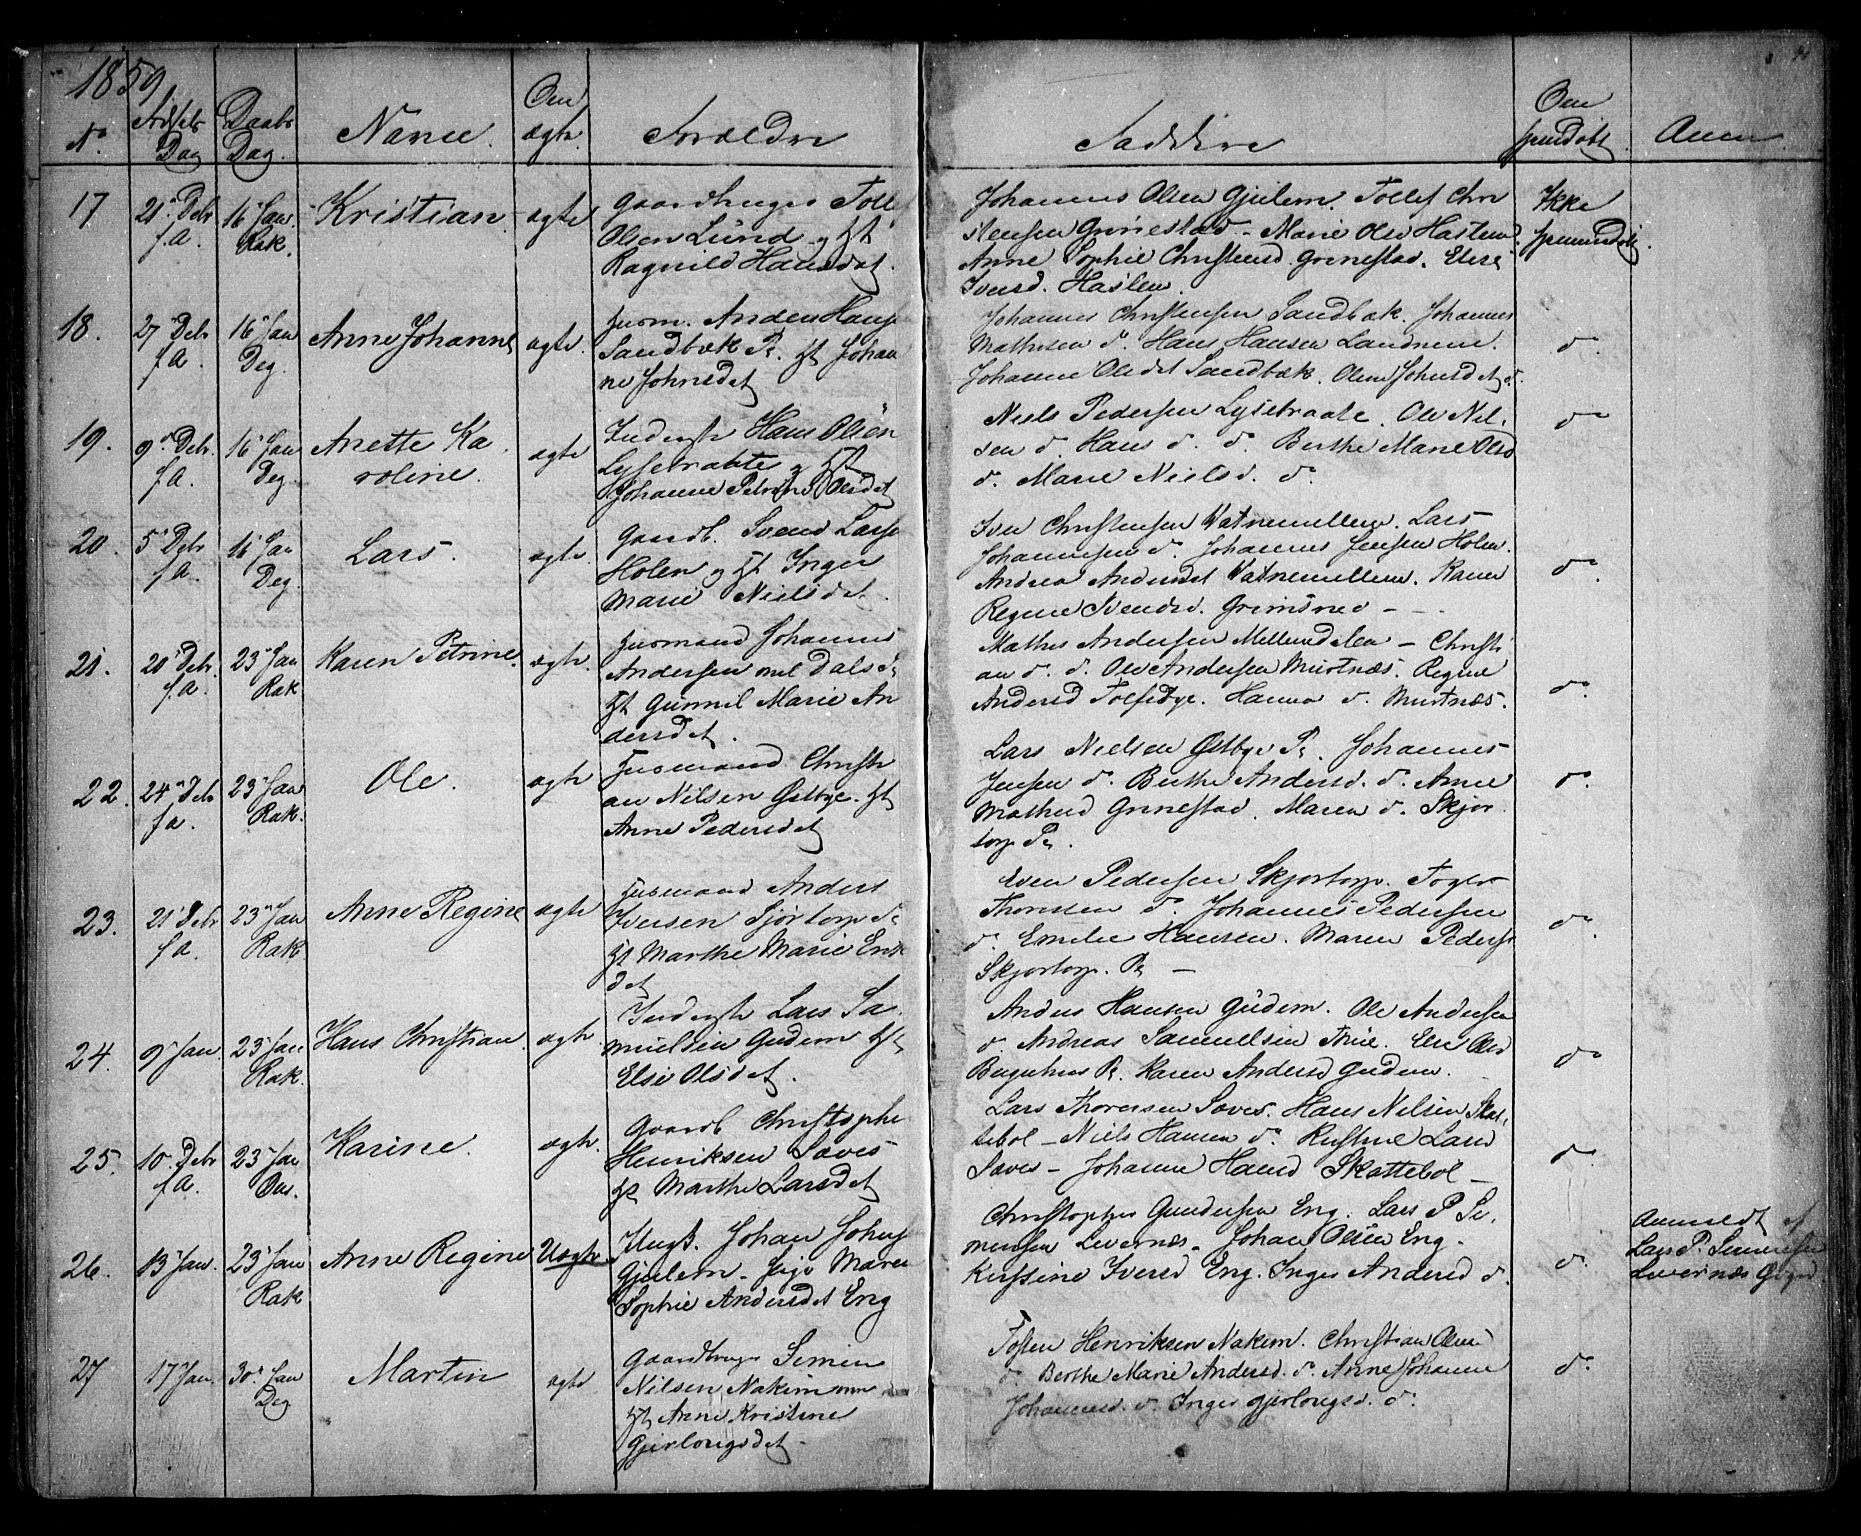 1859
No Fødsels Dag Daabs Dag. Navn. Om ægte. Forældre Faddere Om vac Anm
17 21 Debr f.A. 16 Jan Rak. Kristian ægte
Olsen Lund og Hst
Ragnild Hansdat.
Johannes Olsen Gjulem. Tollef Chri
stensen Grinestad - Marie Olsd Haslem.
Anne Sophie Christensd. Grinestad. Else
Iversd. Haslem.
Ikke
18. 27 Debr f.A. 16 Jan Deg. Anne Johanne ægte.
Husm. Anders Hans
Sandbæk Pl. Hst Johan
ne Johnsdat
Johannes Christensen Sandbæk. Johannes
Mathisen do. Hans Hansen
Johanne Olsdat Sandbæk. Oline Johnsdat do.
do.
19. 9 Debr. f.A. 16 Jan Deg. Anette Ka
roline. ægte
Inderst Hans Olsen
Lysebraate og Hst
Johanne Petrine Olsdat
Niels Pedersen Lysebraate. Ole Niel
sen do. Hans do. do. Berthe Marie Olsd
do. Marie Nielsd. do.
do
20. 5 Debr f.A. 16 Jan Deg. Lars. ægte.
Gaardb. Svend Larse
Holen og Hst Inger
Marie Nielsdat.
Iver Christensen Vatnemellem. Lars
Johannesen do. Johannes Jensen Holen.
Andrea Andersdat Vatnemellem. Karen
Regine Svendsd. Grimsrud -
do.
21. 20 Debr. f.A. 23 Jan Rak Karen Petrine. ægte.
Husmand Johannes
Andersen
Hst Gunnil Marie An
dersdat.
Mathis Andersen - Christi
an do. do. Ole Andersen Mustnæs. Regine
Andersd. Hanna do. Mustnæs.
do.
22. 24 Debr f.A. 23 Jan Rak. Ole. ægte
Husmand Christi
an Nilsen Østbye. Hst
Anne Pedersdat
Lars Nielsen Østbye Pl. Johannes
Jensen do. Berthe Andersd. do. Anne
Mathisd Grinestad. Maren do. Skjor
torp Pl.
do.
23. 21 Debr f.A. 23 Jan Rak Anne Regine ægte
Husmand Anders
Iversen
Hst Marthe Marie Erik
dat
Even Pedersen Skjortorp.
Thoresen do. Johannes Pedersen
do. Emilie Hansen. Maren Peders
Skjortorp. Pl -
do.
24. 9 Jan 23 Jan Rak. Hans Christian. ægte
Inderst Lars Sa
muelsen Gudem Hst
Else Olsdat.
Anders Hansen Gudem. Ole Andersen
do Andreas Samuelsen Else Olsd
Pl. Karen Andersd Gudem.
do
25. 10 Debr f.A. 23 Jan Karine. ægte.
Gaardb Christophe
Henriksen Saves
Hst Marthe Larsdat
Lars Thoresen Saves. Hans Nilsen Skat
tebol - Niels Hansen do. Kirstine Larsd
Saves - Johanne Hansd Skattebol -
do.
26. 13 Jan. 23 Jan Rak Anne Regine Uægte
Ungk. Johan Johns
Gjulem. Pige Maren
Sophie Andersdat Eng
Christopher Gundersen Eng. Lars P. Si
mensen Levernæs. Johan Olsen Eng.
Kirstine Iversd Eng. Inger Andersd do.
do.
Anmeldt af
Lars P. Simensen
Levernæs
27 17 Jan. 30 Jan Deg Martin ægte
Gaardbruger Simen
Nilsen Nakim
Hst Anne Kristine
Gjerlougsdat.
Tosten Henriksen Nakim. Christian Olsen
do. Berthe Marie Andersd. do. Anne Johanne
Johannesd. do. Inger Gjerlougsd. do.
do.